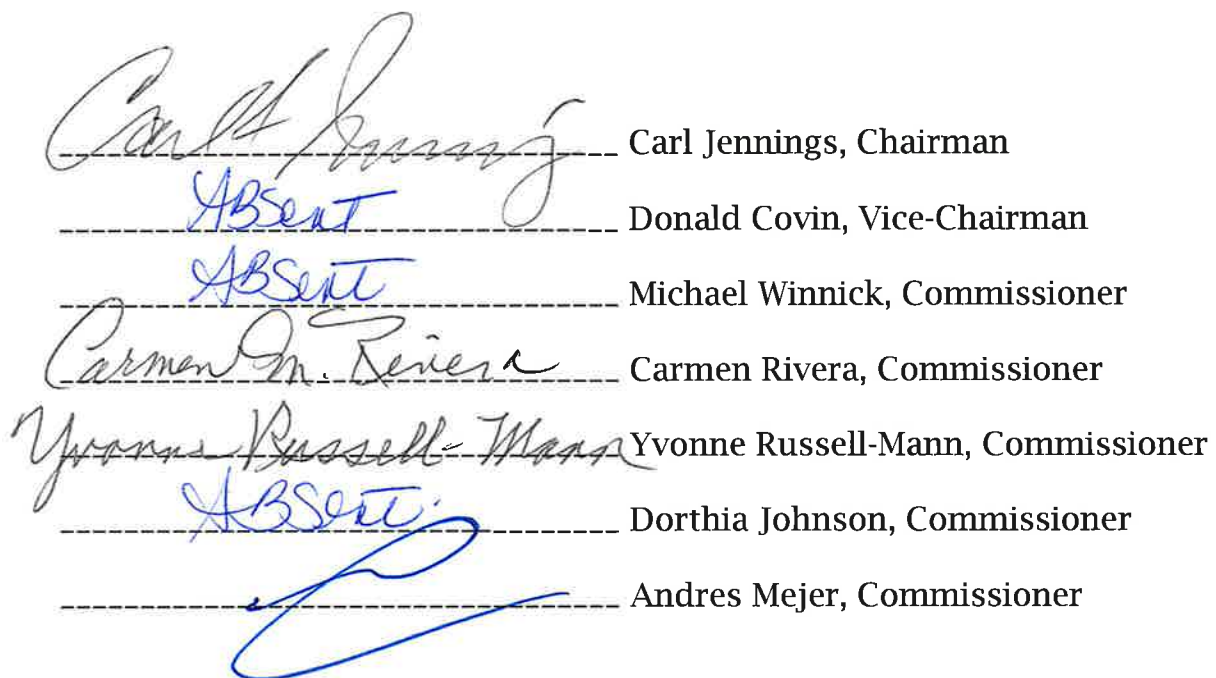 Carl Jennings Carl Jennings, Chairman
ABSent Donald Covin, Vice-Chairman
ABSent Michael Winnick, Commissioner
Carmen M. Rivera Carmen Rivera, Commissioner
Yvonne Russell-Mann Yvonne Russell-Mann, Commissioner
ABSent. Dorthia Johnson, Commissioner
Andres Mejer, Commissioner